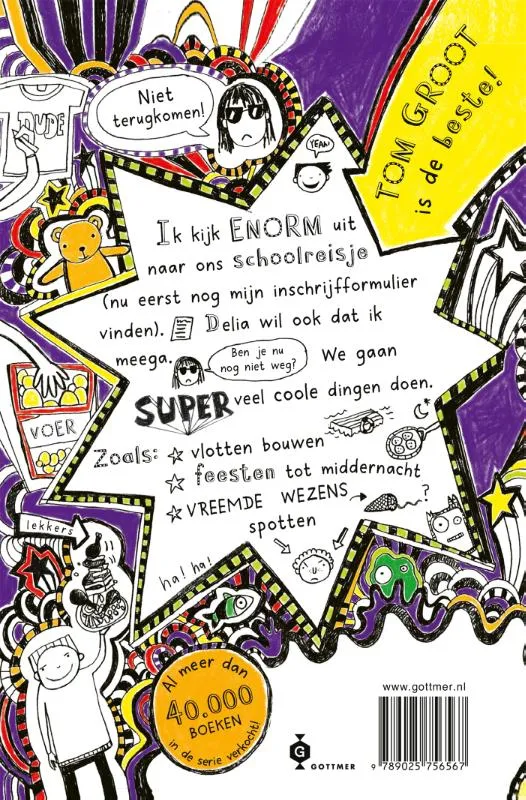 DUDE
Niet
terugkomen!
TOM GROOT
is de beste!
YEAH
Ik kijk ENORM uit
naar ons schoolreisje
(nu eerst nog mijn inschrijfformulier
vinden). Delia wil ook dat ik
meega. Ben je nu
nog niet weg? We gaan
SUPER veel coole dingen doen.
Zoals: ☆ vlotten bouwen
☆ feesten tot middernacht
☆ VREEMDE WEZENS → ?
spotten
VOER
lekkers
ha! ha!
Al meer dan
40.000
BOEKEN
in de serie verkocht!
www.gottmer.nl
G
GOTTMER
9 789025 756567